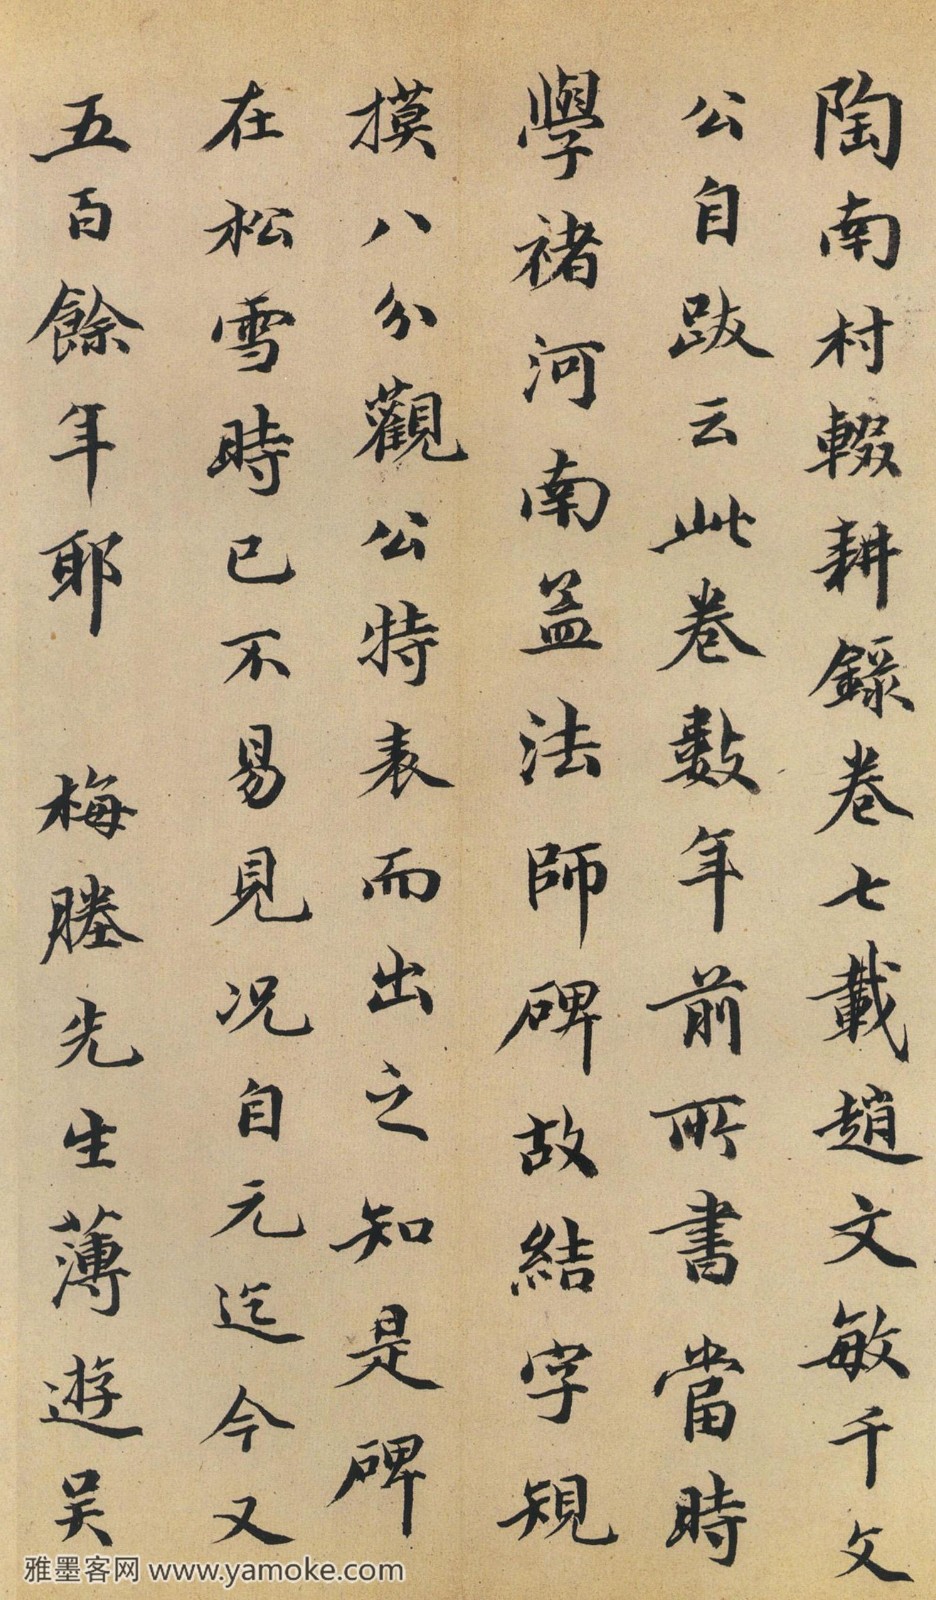 陶南村輟耕錄卷七載趙文敏千文
公自跋云此卷數年前所書當時
學褚河南孟法師碑故結字規
摸八分觀公特表而出之知是碑
在松雪時已不易見況自元迄今又
五百餘年耶 梅塍先生薄遊吴
雅墨客网 www.yamoke.com